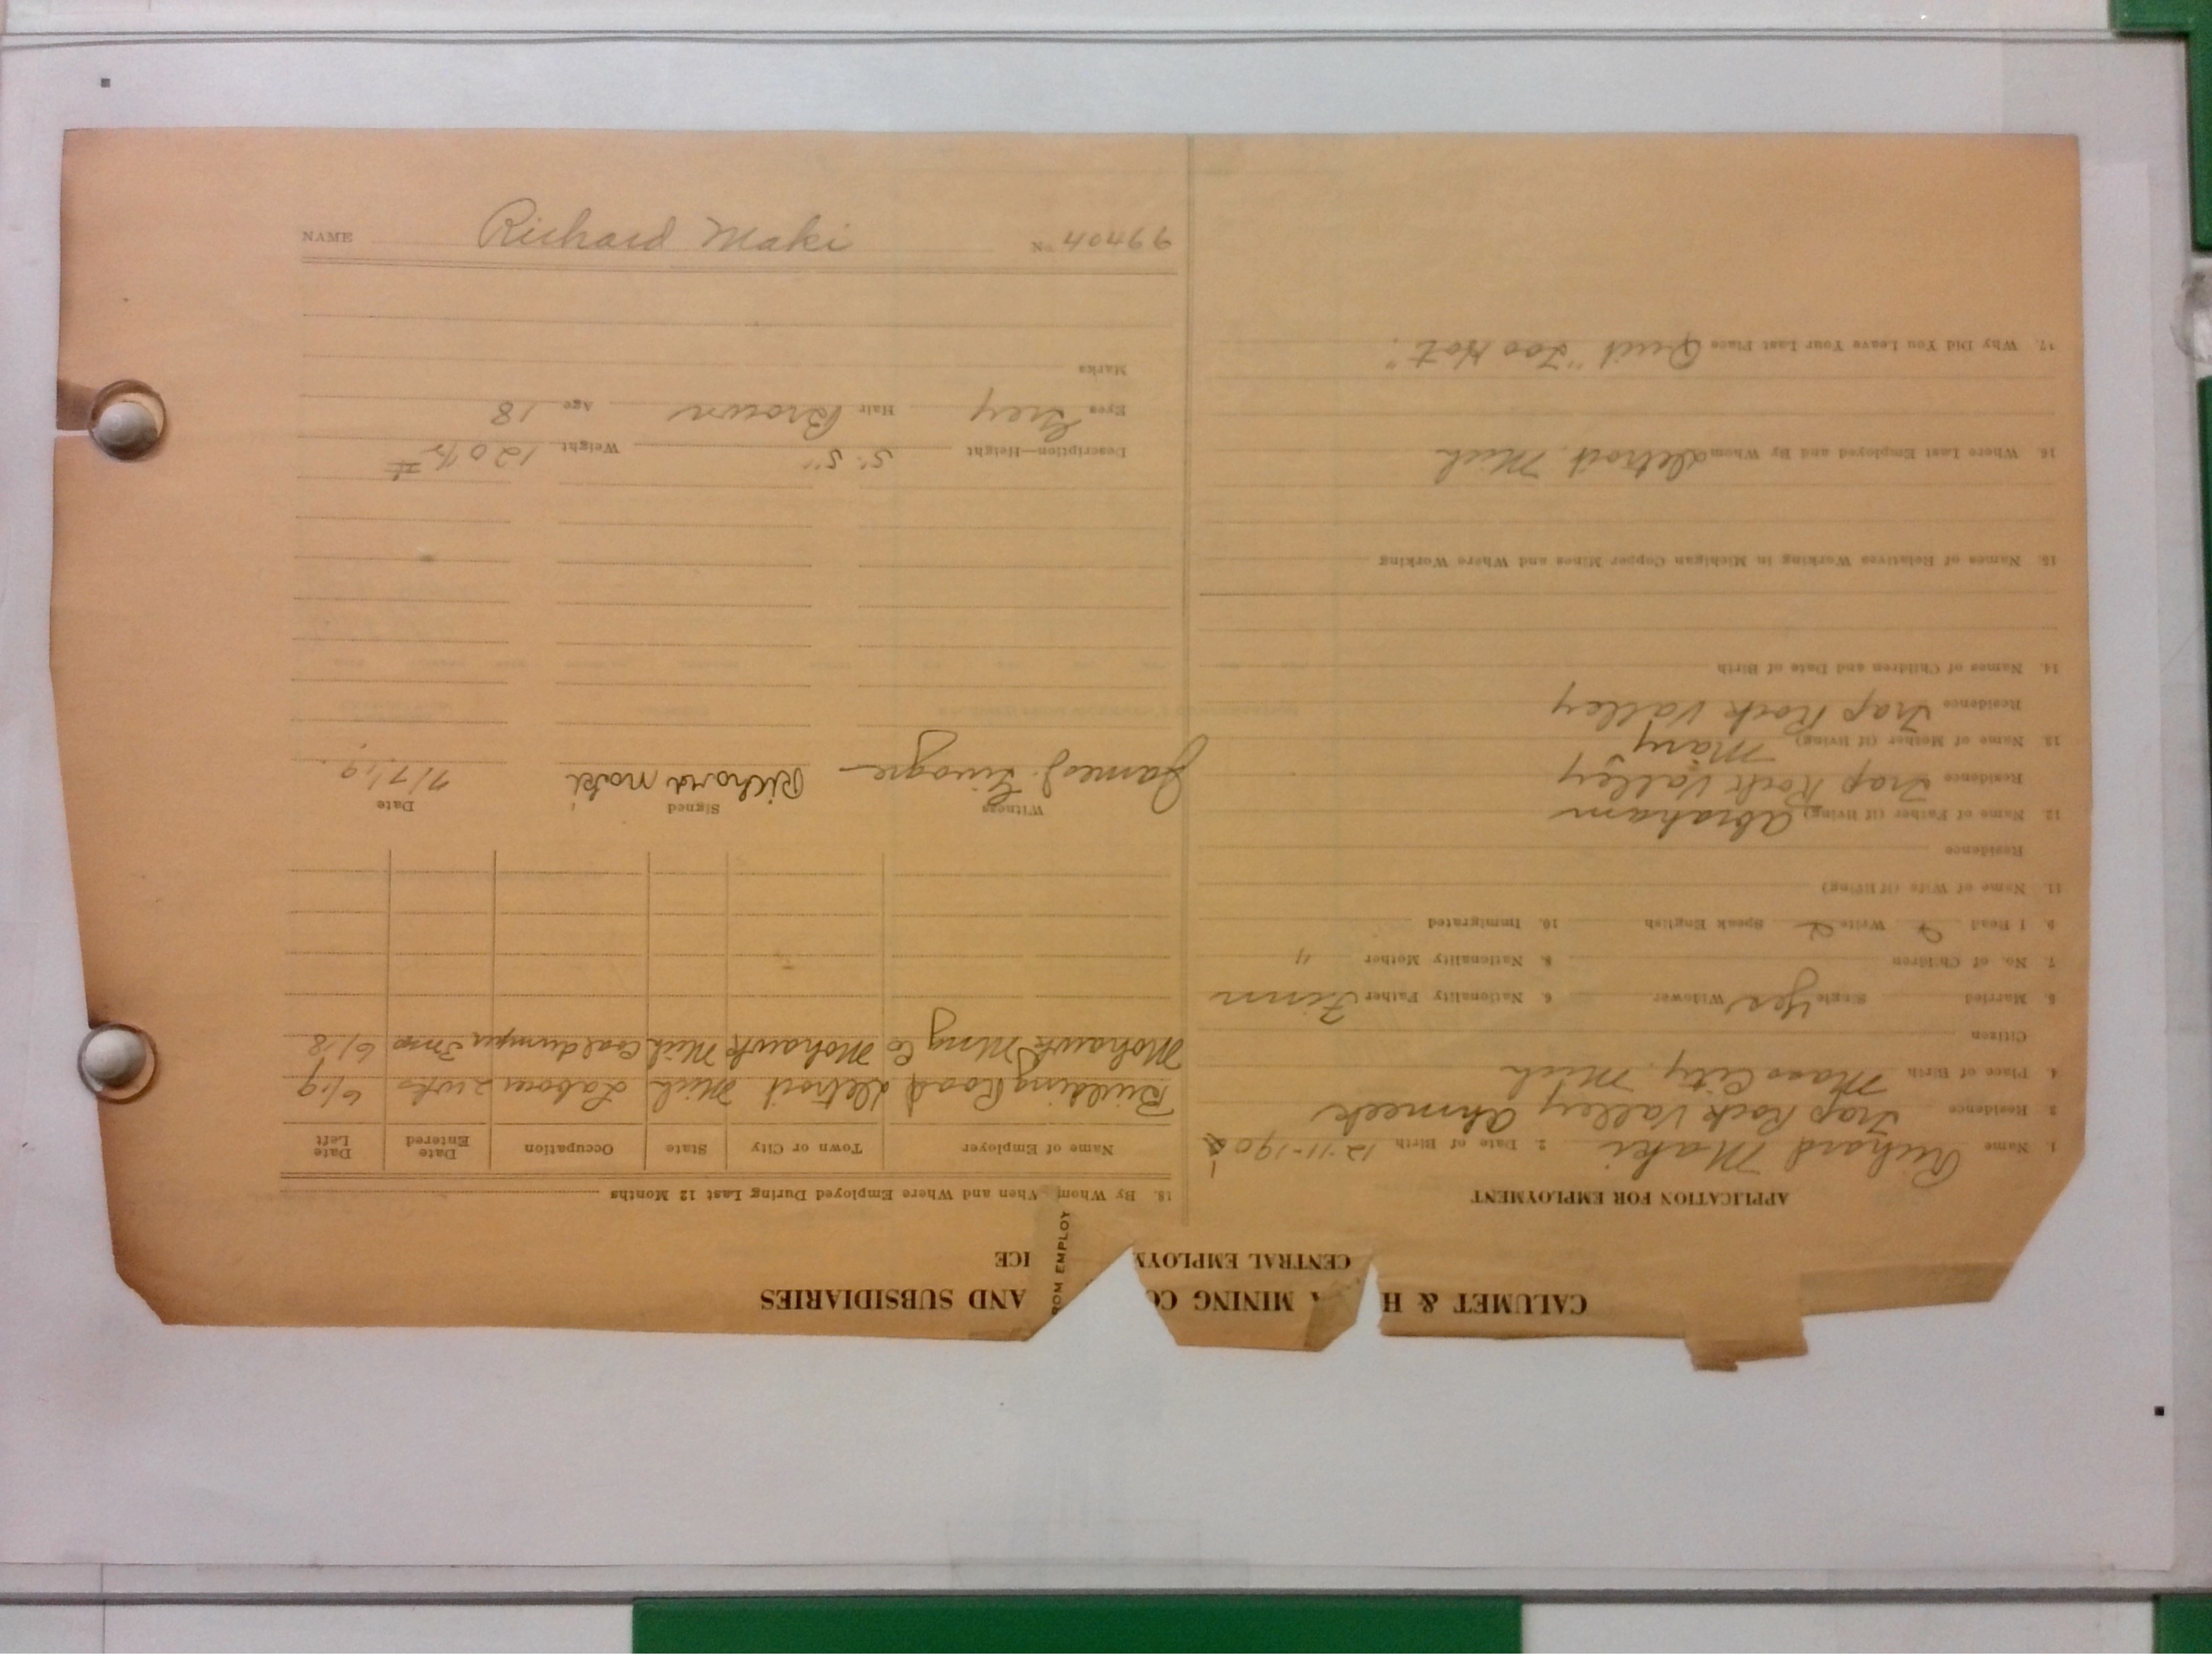 NAME Richard Maki No 40466
CALUMET & H A MINING CO AND SUBSIDIARIES
CENTRAL EMPLOYM ICE
ROM EMPLOY
APPLICATION FOR EMPLOYMENT
1. Name Richard Maki 2. Date of Birth 12-11-190
3. Residence Trap Rock Valley Ahmeek
4. Place of Birth Mass City, Mich
Citizen
5. Married Single Yes Widower 6. Nationality Father Finn
7. No. of Children 8. Nationality Mother "
9. I Read Write Speak English 10. Immigrated
11. Name of Wife (if living)
Residence
12. Name of Father (if living) Abraham
Residence Trap Rock Valley
13. Name of Mother (if living) Mary
Residence Trap Rock Valley
14. Names of Children and Date of Birth
15. Names of Relatives Working in Michigan Copper Mines and Where Working
16. Where Last Employed and By Whom Detroit Mich
17. Why Did You Leave Your Last Place Quit "Too Hot".
18. By Whom When and Where Employed During Last 12 Months
Name of Employer Town or City State Occupation Date Entered Date Left
Building Road Detroit Mich Labour 2 wks 6/19
Mohawk Mng Co Mohawk Mich Coal dumper 3 mos 6/18
Witness Signed Date
James J. Richard Maki 7/7/19.
Description—Height 5' 5" Weight 120 ½ #
Eyes Grey Hair Brown Age 18
Marks